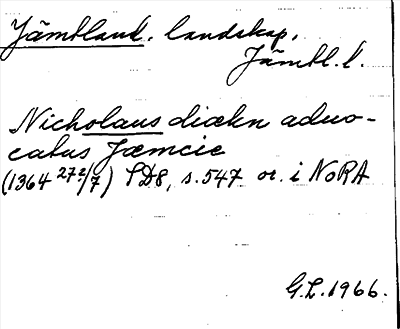 Jämtland, landskap,
Jämtl. l.
Nicholaus diækn aduo-
catus Jæmcie
(1364 27?/7) SD8, s. 547 or. i NoRA
G.L. 1966.